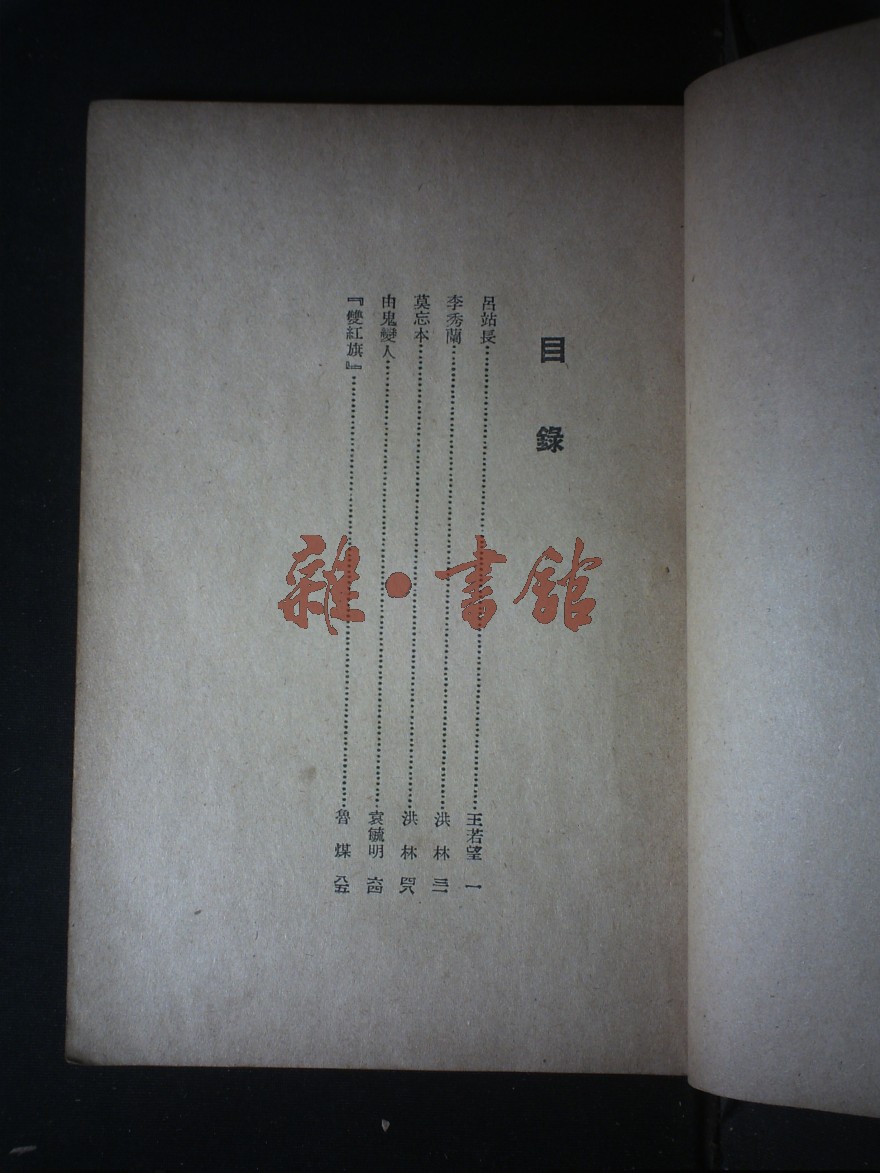 目錄
呂站長⋯⋯⋯⋯⋯⋯王若望 一
李秀蘭⋯⋯⋯⋯⋯⋯洪林 三一
莫忘本⋯⋯⋯⋯⋯⋯洪林 四八
由鬼變人⋯⋯⋯⋯⋯⋯袁毓明 六四
『雙紅旗』⋯⋯⋯⋯⋯⋯魯煤 八五
雜·書舘